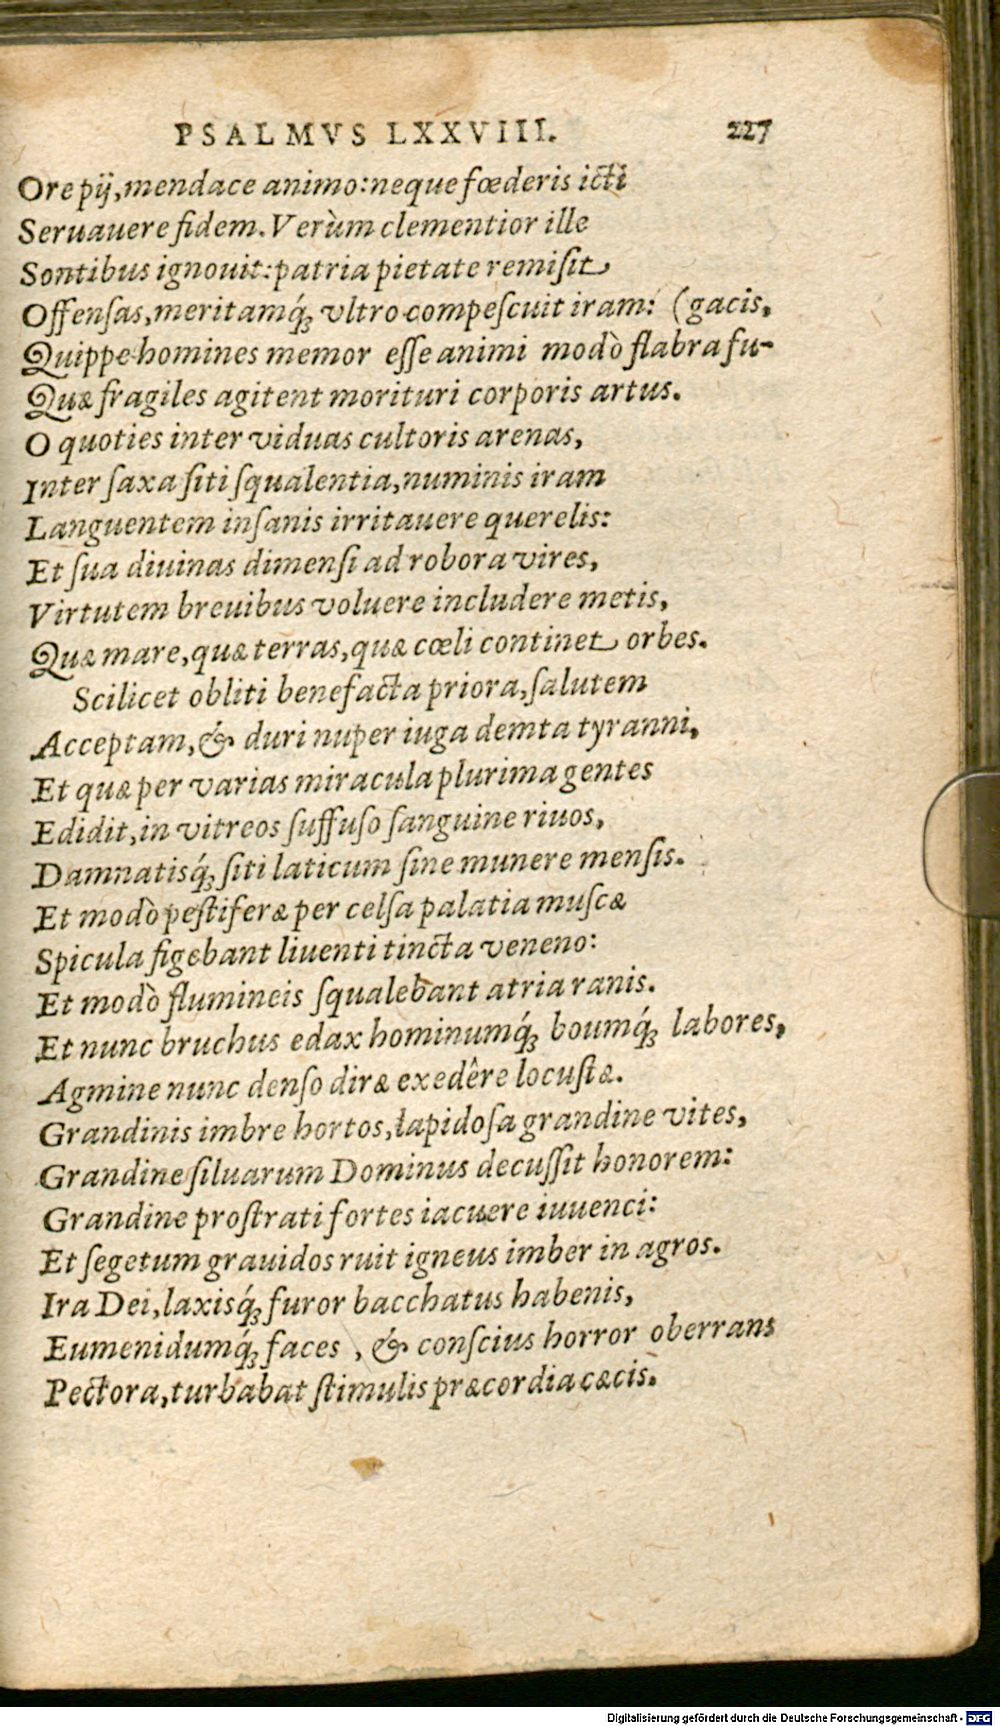 PSALMVS LXXVIII. 227
Ore pij, mendace animo: neque fœderis icti
Seruauere fidem. Verùm clementior ille
Sontibus ignouit: patria pietate remiſit
Offenſas, meritamq́ꝫ vltro compeſcuit iram: (gacis,
Quippe homines memor eſſe animi modò flabra fu-
Quæ fragiles agitent morituri corporis artus.
O quoties inter viduas cultoris arenas,
Inter ſaxa ſiti ſqualentia, numinis iram
Languentem inſanis irritauere querelis:
Et ſua diuinas dimenſi ad robora vires,
Virtutem breuibus voluere includere metis,
Quæ mare, quæ terras, quæ cœli continet orbes.
Scilicet obliti benefacta priora, ſalutem
Acceptam, & duri nuper iuga demta tyranni,
Et quæ per varias miracula plurima gentes
Edidit, in vitreos ſuffuſo ſanguine riuos,
Damnatisq́ꝫ ſiti laticum ſine munere menſis.
Et modò peſtiferæ per celſa palatia muſcæ
Spicula figebant liuenti tincta veneno:
Et modò flumineis ſqualebant atria ranis.
Et nunc bruchus edax hominumq́ꝫ boumq́ꝫ labores,
Agmine nunc denſo diræ exedêre locuſtæ.
Grandinis imbre hortos, lapidoſa grandine vites,
Grandine ſiluarum Dominus decuſſit honorem:
Grandine proſtrati fortes iacuere iuuenci:
Et ſegetum grauidos ruit igneus imber in agros.
Ira Dei, laxisq́ꝫ furor bacchatus habenis,
Eumenidumq́ꝫ faces, & conſcius horror oberrans
Pectora, turbabat ſtimulis præcordia cæcis.
Digitalisierung gefördert durch die Deutsche Forschungsgemeinschaft - DFG